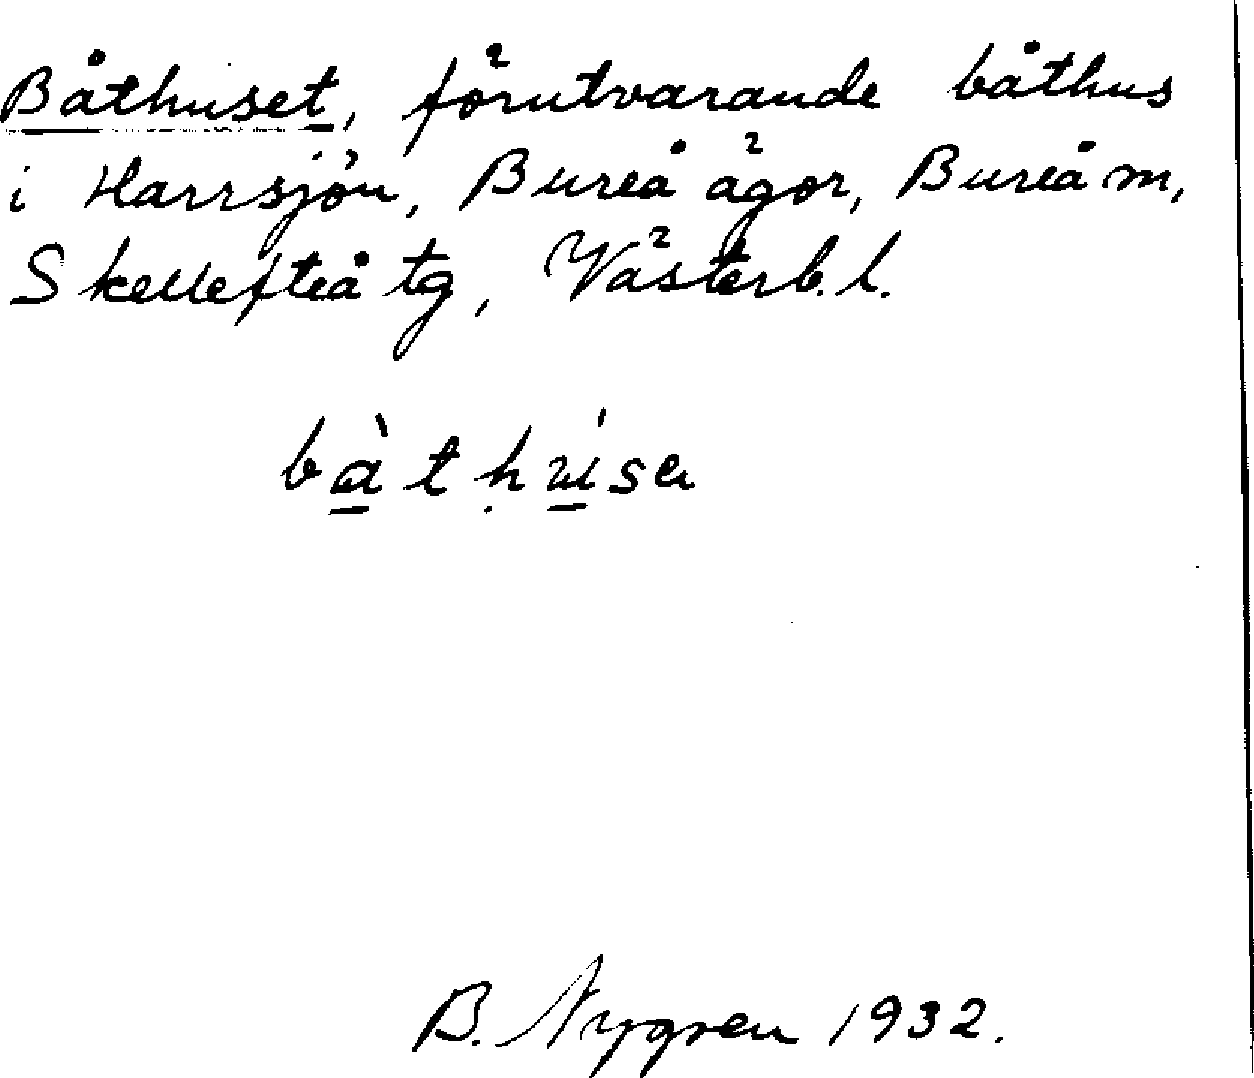 Båthuset, förutvarande båthus
i Harrsjön, Bureå ägor, Bureå m,
Skellefteå tg, Västerb. l.
bà̲tḥú̲sa
B. Nygren 1932.